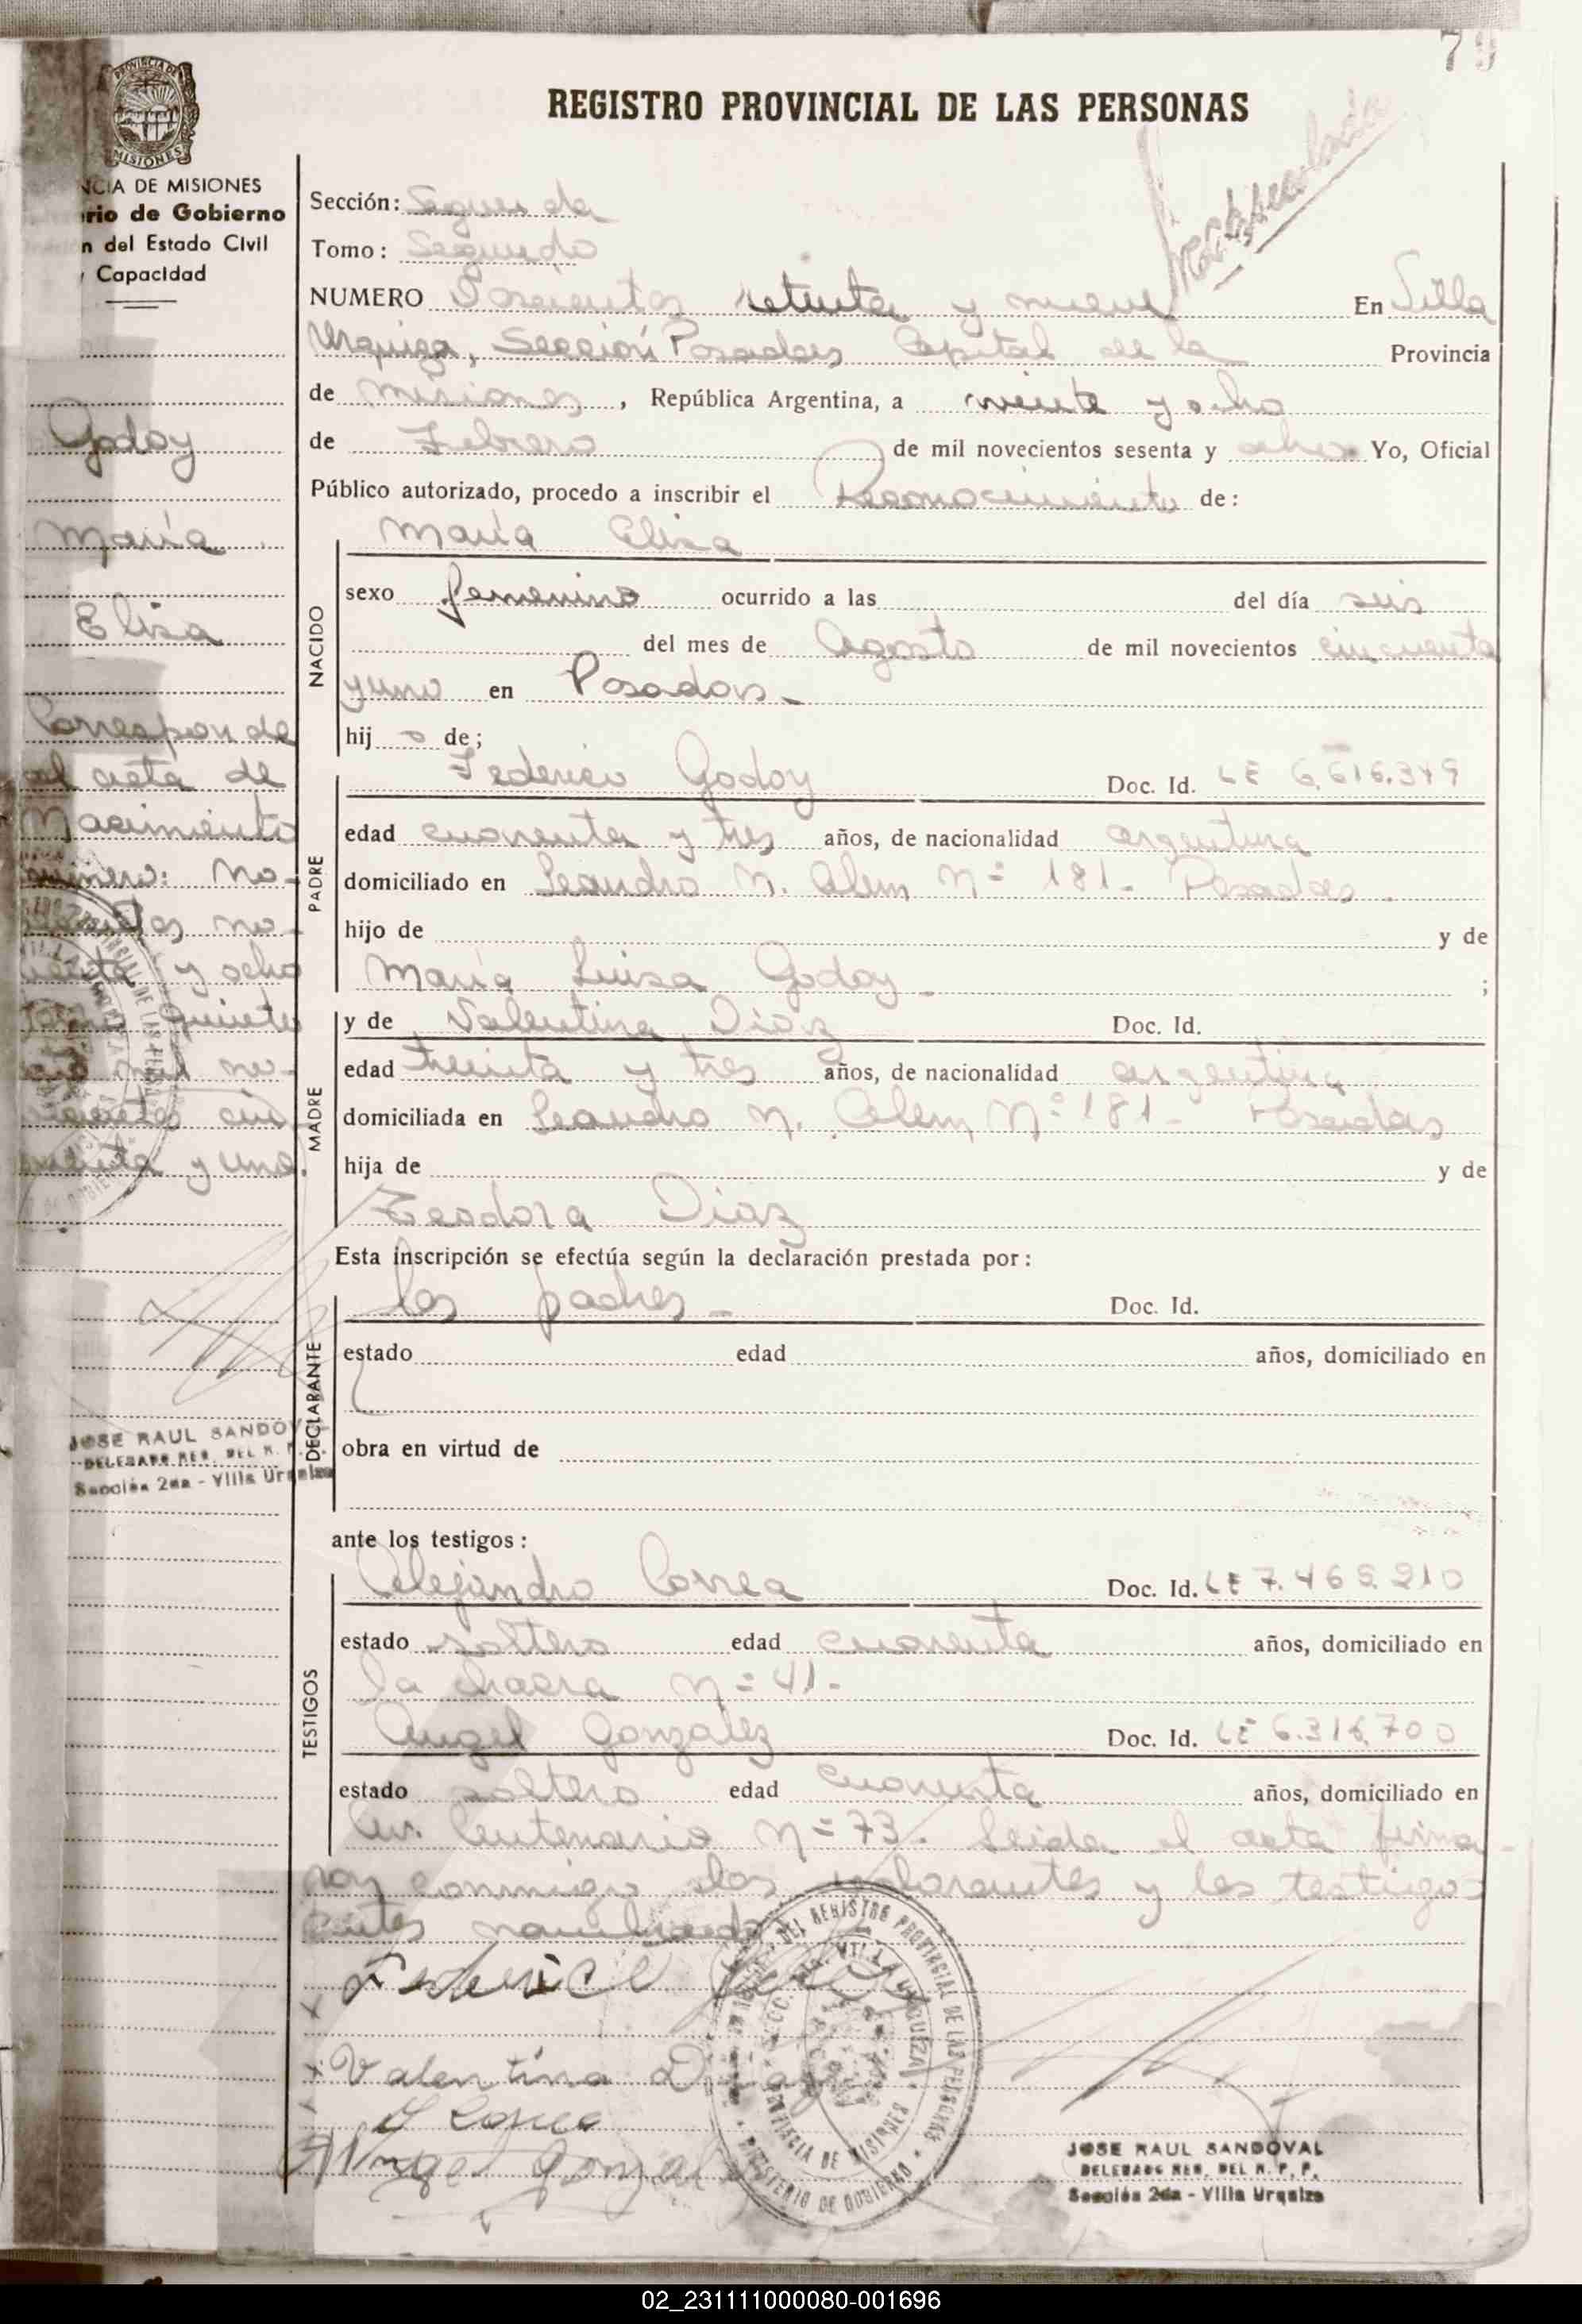 79
REGISTRO PROVINCIAL DE LAS PERSONAS
PROVINCIA DE
MISIONES
NCIA DE MISIONES
rio de Gobierno
n del Estado Civil
y Capacidad
Sección: Segunda
Tomo: Segundo
NUMERO setenta y nueve En Villa
Urquiza, Sección Posadas Capital de la Provincia
de Misiones, República Argentina, a veinte y ocho
de Febrero de mil novecientos sesenta y ocho Yo, Oficial
Público autorizado, procedo a inscribir el Reconocimiento de:
María Elisa
NACIDO
sexo femenino ocurrido a las del día seis
del mes de Agosto de mil novecientos cincuenta
y uno en Posadas.-
hij a de;
PADRE
Federico Godoy Doc. Id. LE 6.616.349
edad cuarenta y tres años, de nacionalidad argentina
domiciliado en Leandro N. Alem Nº 181- Posadas.
hijo de y de
María Luisa Godoy - ;
MADRE
y de Valentina Diaz Doc. Id.
edad treinta y tres años, de nacionalidad argentina
domiciliada en Leandro N. Alem Nº 181- Posadas
hija de y de
Teodora Diaz
Esta inscripción se efectúa según la declaración prestada por:
DECLARANTE
los padres - Doc. Id.
estado edad años, domiciliado en
obra en virtud de
ante los testigos:
TESTIGOS
Alejandro Correa Doc. Id. LE 7.
estado soltero edad cuarenta años, domiciliado en
la chacra Nº 41.
Angel Gonzalez Doc. Id. LE 6.316.700
estado soltero edad cuarenta años, domiciliado en
Av. Centenario Nº 73. Leida el acta firma-
ron conmigo los y los testigos
antes nombrados
Federico Godoy
Valentina Diaz
Angel Gonzal
JOSE RAUL SANDOVAL
DELEGADO REG. DEL R. P. P.
Sección 2da - Villa Urquiza
Godoy
María
Elisa
Corresponde
al acta de
Nacimiento
número: No-
no-
y ocho
Quinto
mil no-
cin
cuenta y uno.
JOSE RAUL SANDOV
DELEGADO REG. DEL R. P.
Sección 2da - Villa Urquiza
02_231111000080-001696